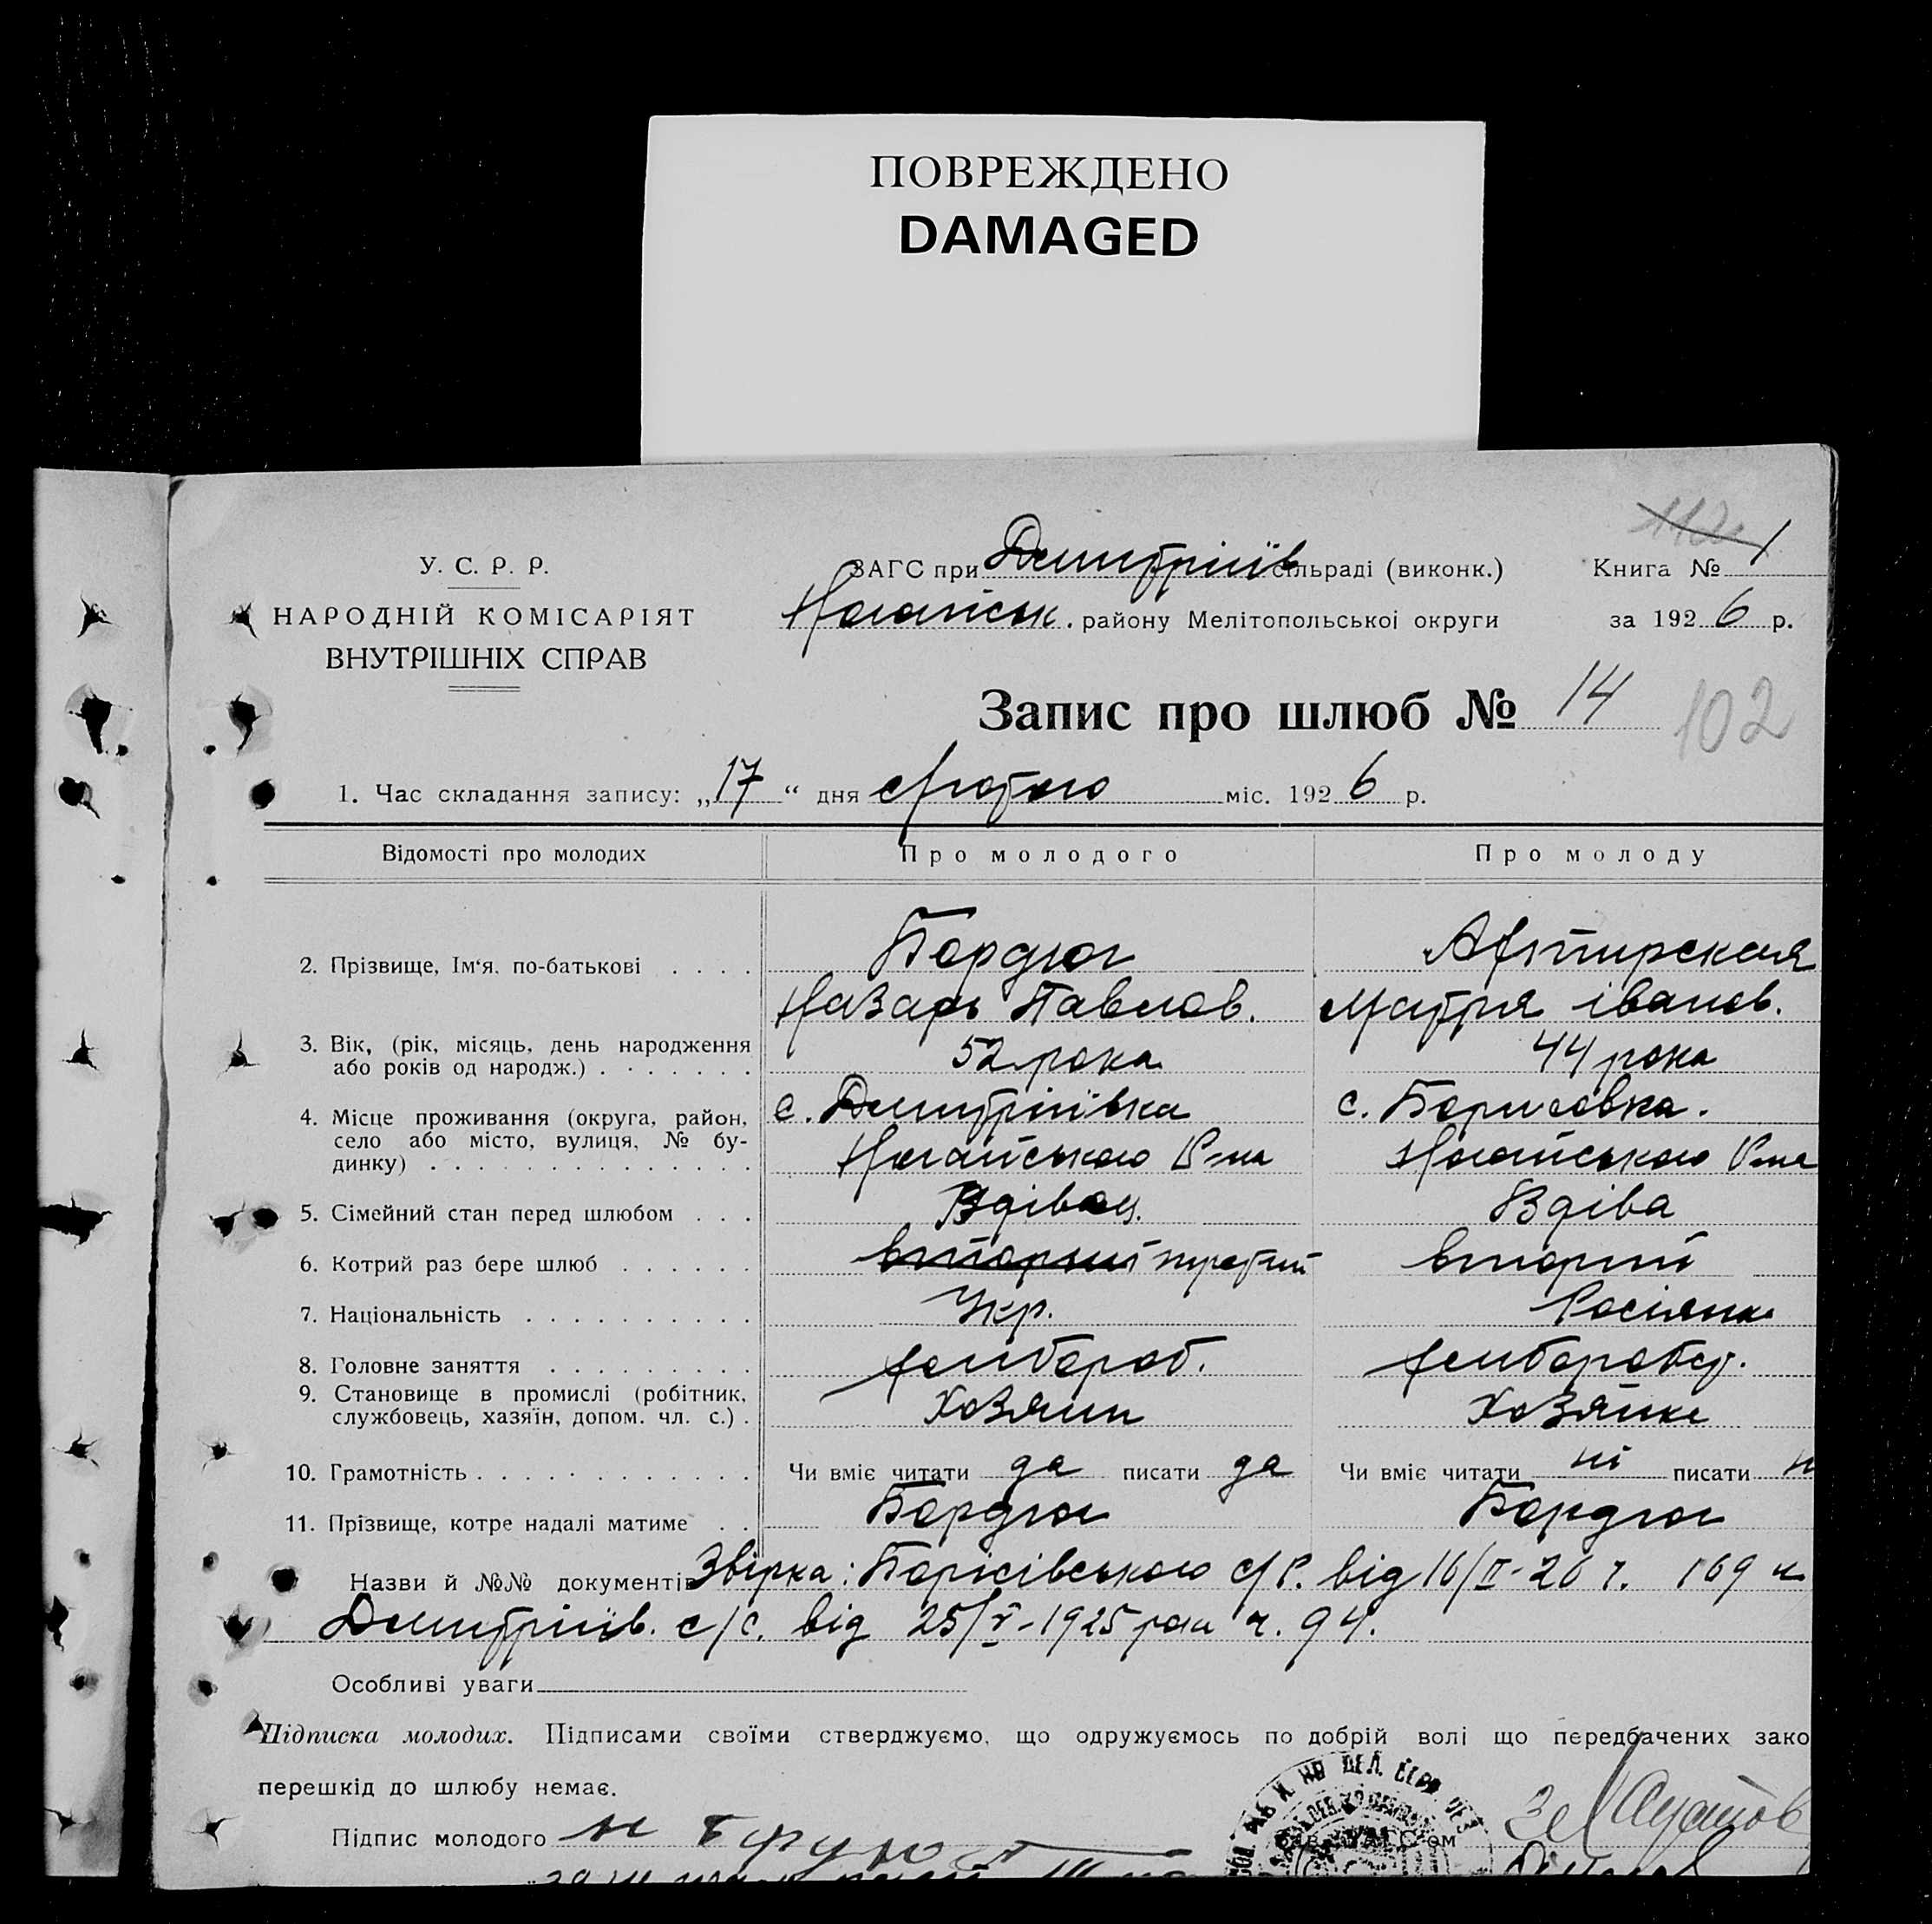 ПОВРЕЖДЕНО
DAMAGED
112 1
У. С. Р. Р.
НАРОДНІЙ КОМІСАРІЯТ
ВНУТРІШНІХ СПРАВ
ЗАГС при Дмитріїв сільраді (виконк.)
Ногайськ. району Мелітопольської округи
Книга № 1
за 1926 р.
Запис про шлюб № 14
102
1. Час складання запису: „17“ дня Лютого міс. 1926 р.
Відомості про молодих Про молодого Про молоду
2. Прізвище, Ім‘я, по-батькові . . . . Бордюг
Назарь Павлов. Мотря іванов.
3. Вік, (рік, місяць, день народження
або років од народж.) . . . . . . . 52 рока 44 рока
4. Місце проживання (округа, район,
село або місто, вулиця, № бу-
динку) . . . . . . . . . . . . . .
с. Дмитріївка с. Борисовка.
Ногайського Р-на Ногайського Р-на
5. Сімейний стан перед шлюбом . . . Вдівец. Вдіва
6. Котрий раз бере шлюб . . . . . . вторий третий вторий
7. Національність . . . . . . . . . . Укр. Росіянка
8. Головне заняття . . . . . . . . . хлібороб.
9. Становище в промислі (робітник,
службовець, хазяїн, допом. чл. с.) . Хозяин Хозяйка
10. Грамотність . . . . . . . . . . . . Чи вміє читати да писати да Чи вміє читати ні писати н
11. Прізвище, котре надалі матиме . . Бордюг Бордюг
Назви й №№ документів Звірка: Борісівського с/Р. від 16/II-26 г. 169 и
Дмитріїв. с/с. від 25/V-1925 рока ч. 94.
Особливі уваги
Підписка молодих. Підписами своїми стверджуємо, що одружуємось по добрій волі що передбачених зако
перешкід до шлюбу немає.
Підпис молодого